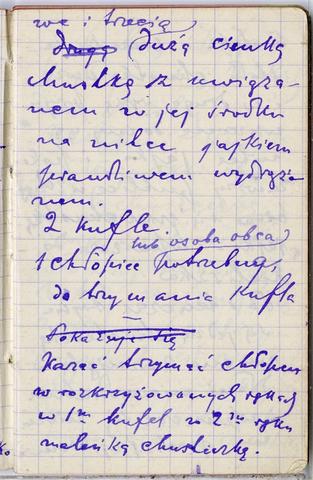 we i trzecią
drugą (dużą cienką
chustką z uwiąza-
nem w jej środku
na nitce jajkiem
prawdziwem wydrąża
nem.
2 kufle.
lub osoba obca)
1 chłopiec potrzebny,
do trzymania kufla
—
Pokazuje się
Kazać trzymać chłopcu
w rozkrzyżowanych rękach
w 1ᵐ kufel w 2ᵐ ręku
maleńką chusteczkę.